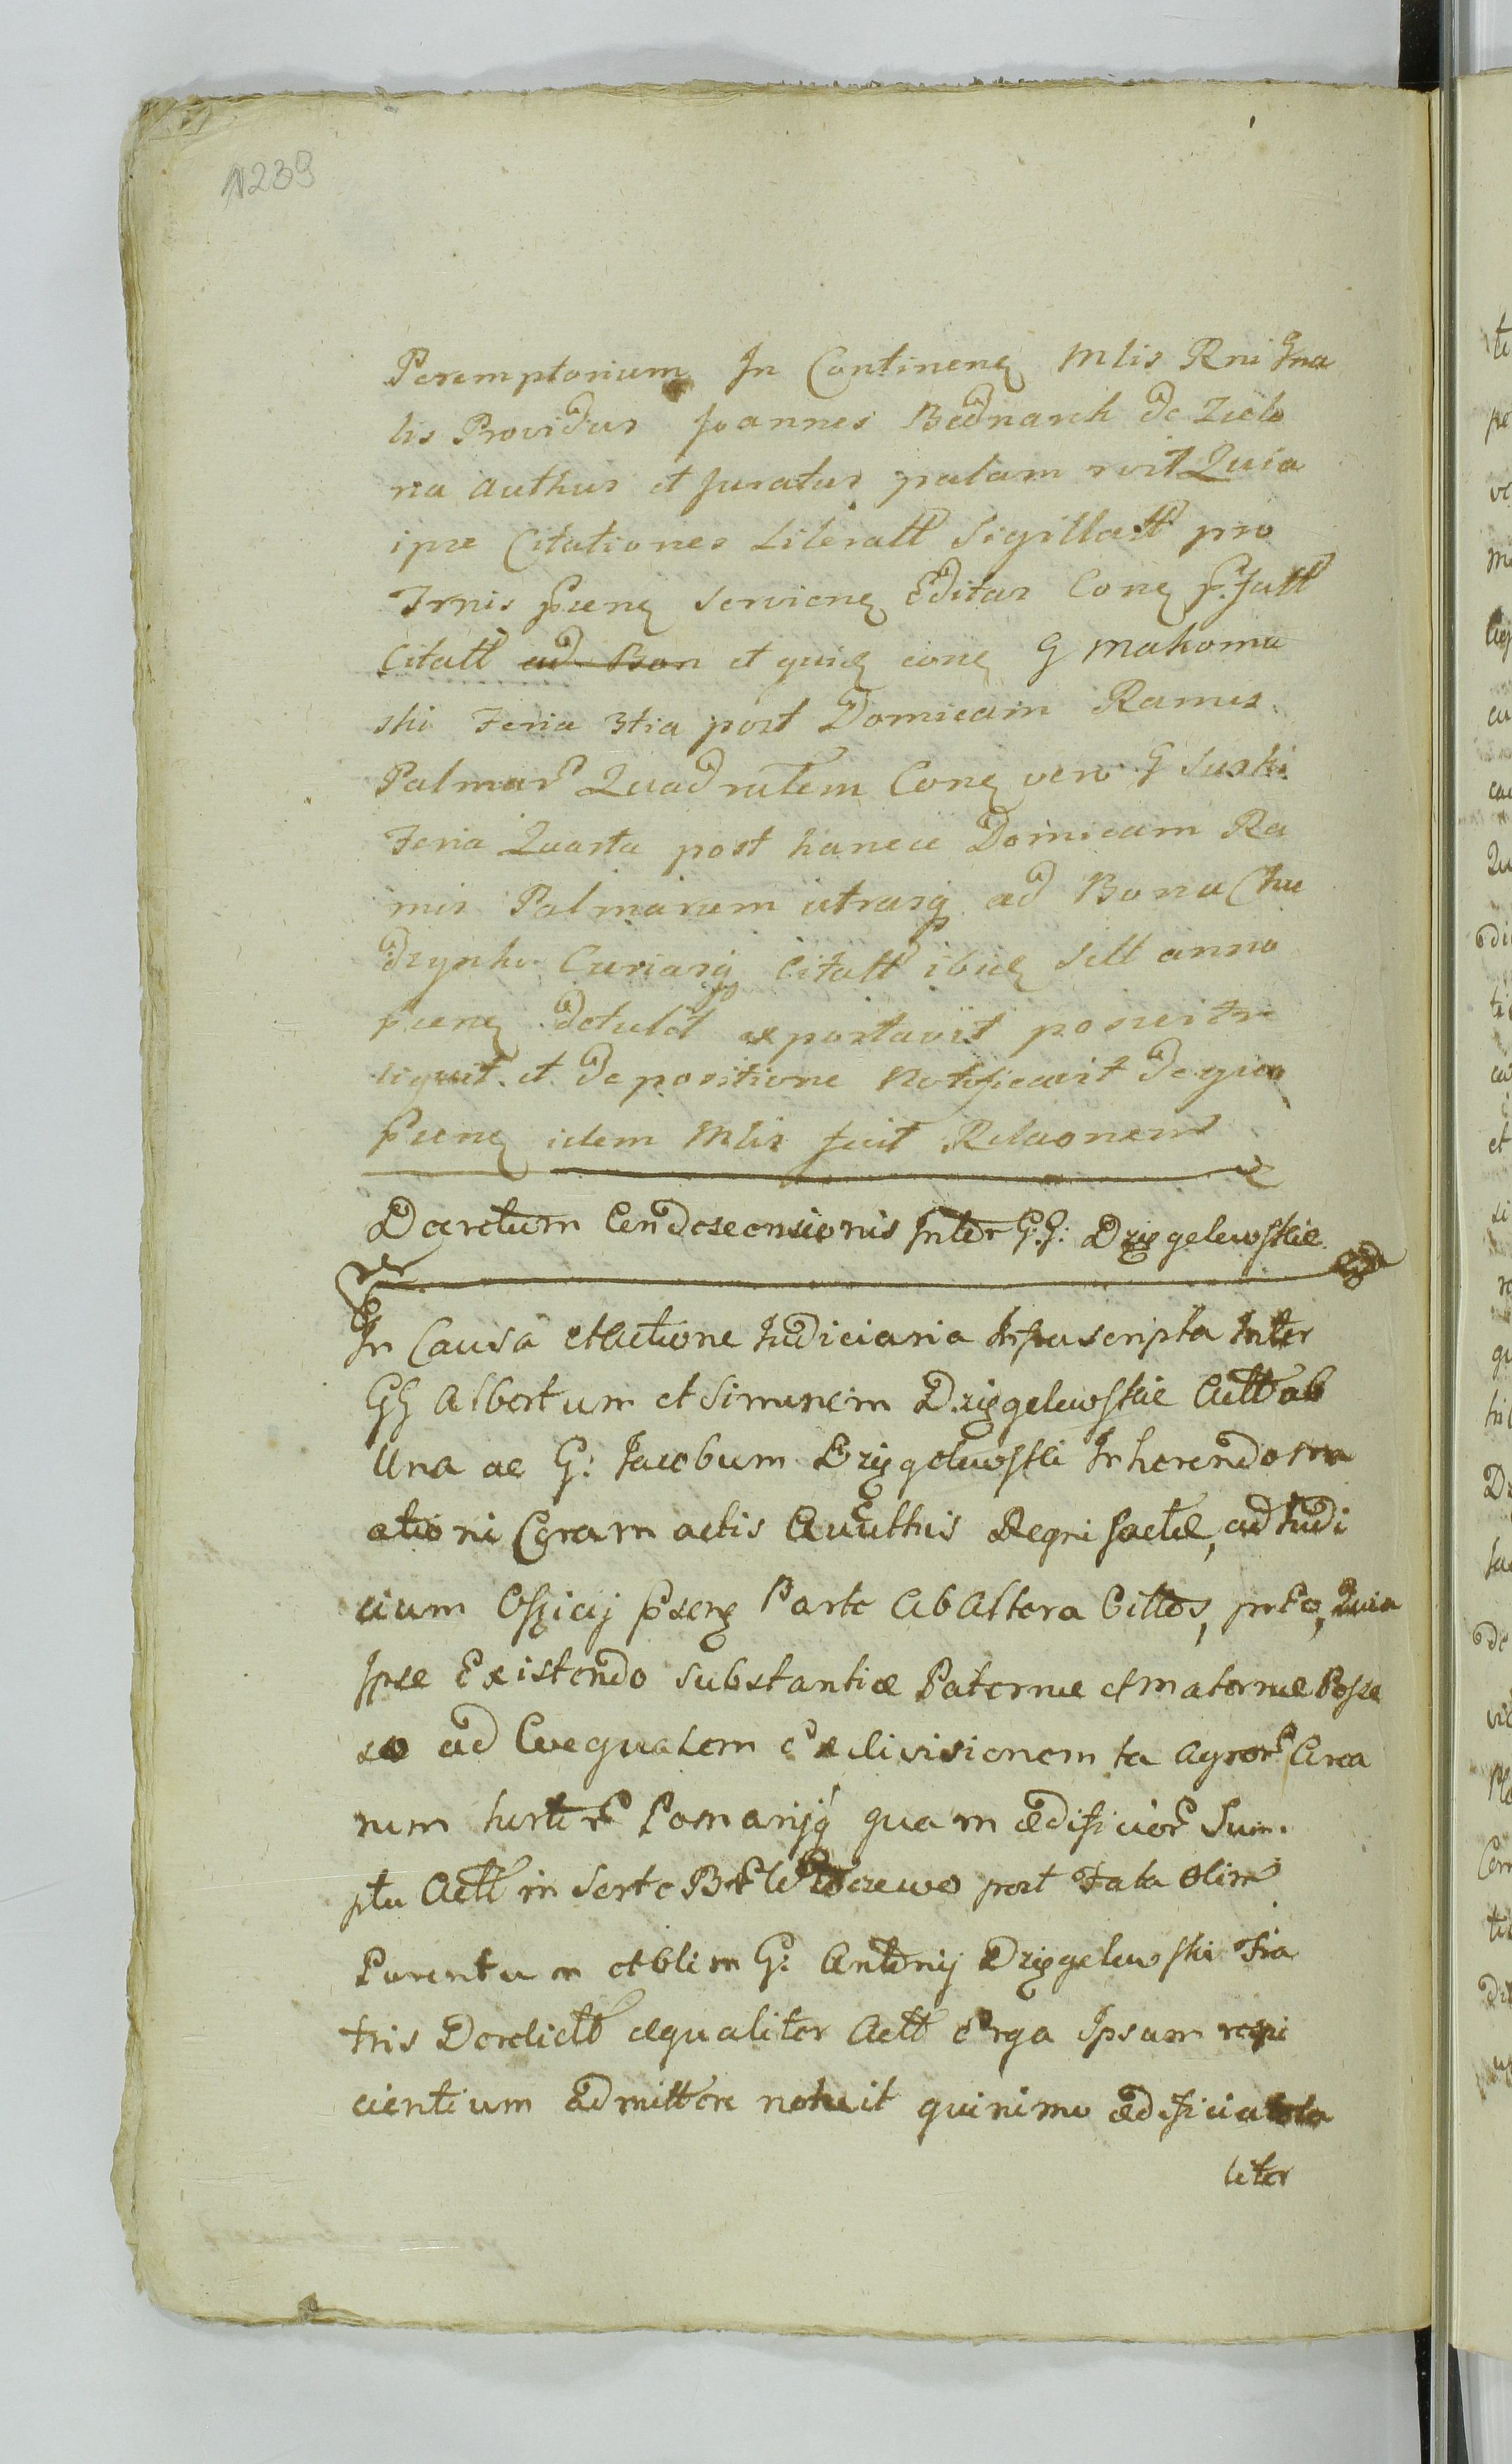 1239
Peremptorium In Continenȩ Mlis Rni Gna
lis Providus Joannes Bednarek de Zielo
na authus et Juratus palam rvit Quia
ipse Citationes Literatt Sigillatt pro
Trnis psenȩ servienȩ Editas Conȩ p. Jatt
Citatt ad Bon et quidȩ conȩ G Makoma
ski Feria 3tia post Domicam Ramis
Palmar Quadratem Conȩ vero G Suski
Feria Quarta post hancce Domicam Ra
mis Palmarum utrasq ad Bona Chu
dzynko Curiasq Citatt ibidȩ sitt anno
psenȩ detulit exportavit posuit re
liquit et de positione Notificavit de qua
psenȩ idem Mlis fecit Relaonem
Decretum Condescensionis Inter G:G: Dzięgelewskie
In Causa et Actione Judiciaria Infrascripta Inter
GG Albertum et Simonem Dzięgelewskie Actt ab
Una ac G: Jacobum Dzięgelewski Inherendo ma
ationi Coram actis Authis Regni factæ, ad Judi
cium Officij psenȩ Parte Ab Altera Cittos, pnto, Quia
Ipse Existendo substantiæ Paternæ et maternæ Posse
so ad Coequalem exdivisionem ta Agror Area
rum hortor Pomarijq quam ædificior Sum
ptu Actt in Sorte Br post Fata olim
Parentum et olim G: Antonij Dzięgelewski Fra
tris Derelictt æqualiter Actt erga Ipsum respi
cientium admittere noluit quinimo ædificia tota
liter